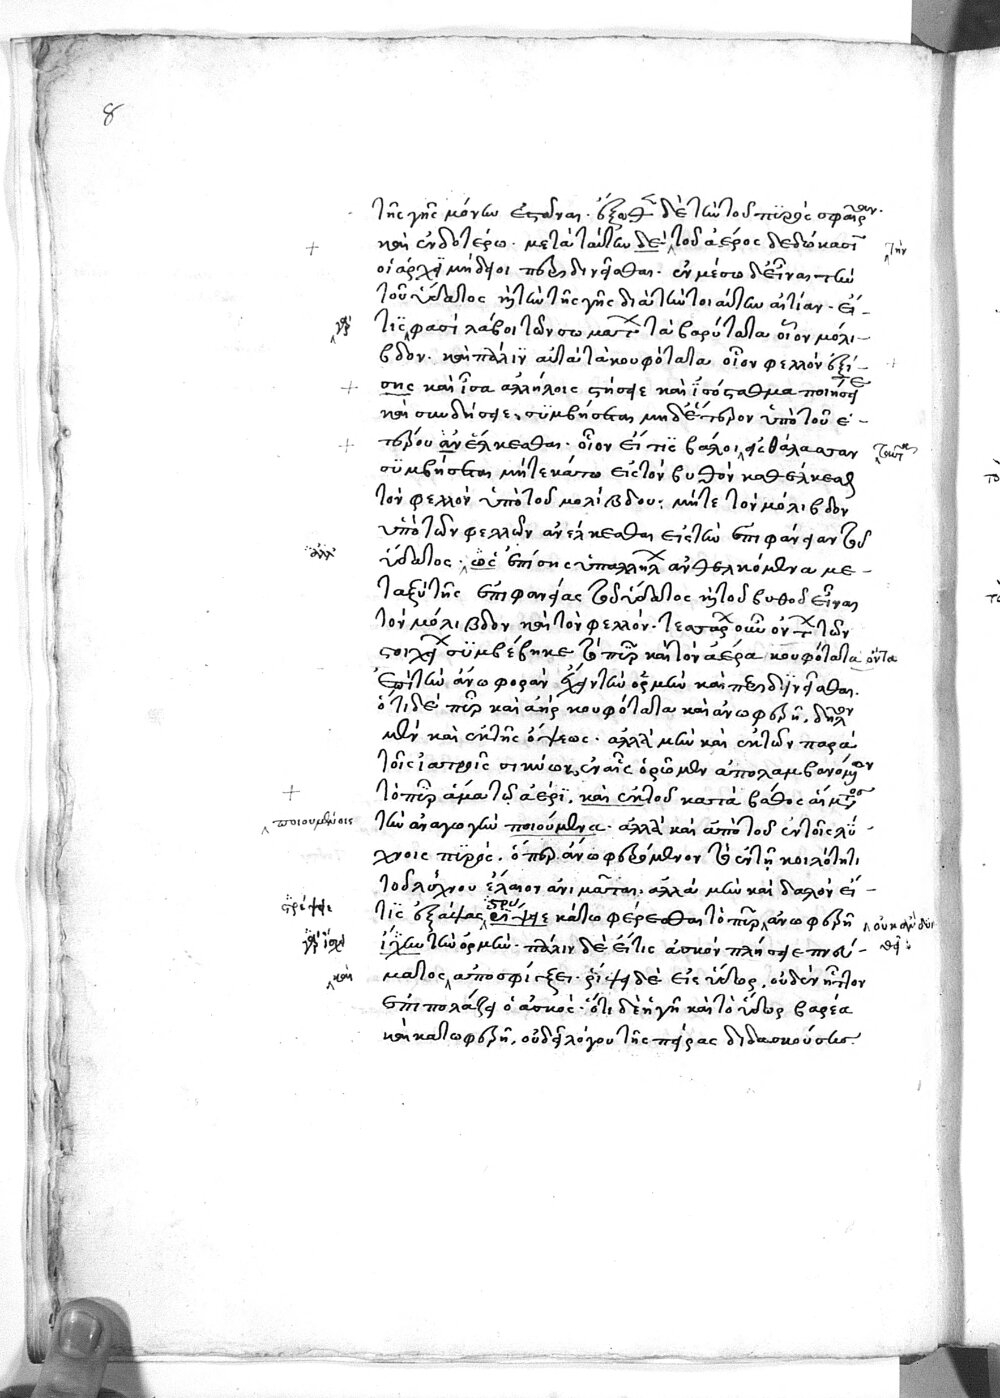 8
τῆς γῆς μόνω ἐπεῖναι. ἔξωθεν δὲ τὴν τοῦ πυρὸς σφαῖραν.
καὶ ἐνδοτέρω. μετὰ ταύτην δὲ τοῦ ἀέρος δεδώκασι
τὴν
περιδινεῖσθαι. ἐν μέσω δ' εἶναι τὴν
τοῦ ὕδατος ἢ τὴν τῆς γῆς διὰ τὴν τοιαύτην αἰτίαν. εἴ-
γὰρ
τις φασὶ λάβοι τῶν σωμάτων τὰ βαρύτατα οἷον μόλι-
βδον. καὶ πάλιν αὖ τὰ κουφότατα οἷον φελλὸν ἐξί-
σης καὶ ἴσα ἀλλήλοις στήσειε καὶ ἰσόσταθμα ποιήσειε
καὶ συνδήσειε, συμβήσεται μηδέτερον ὑπὸ τοῦ ἑ-
τέρου ἀνέλκεσθαι. οἷον εἴ τις βάλοι εἰς θάλασσαν
ταῦτα
συμβήσεται μήτε κάτω εἰς τὸν βυθὸν καθέλκεσθαι
τὸν φελλὸν ὑπὸ τοῦ μολίβδου: μήτε τὸν μόλιβδον
ὑπὸ τῶν φελλῶν ἀνέλκεσθαι εἰς τὴν ἐπιφάνειαν τοῦ
ἀλλ'
ὕδατος. ὡς ἐπίσης ὑπαλλήλων ἀνθελκόμενα με-
ταξὺ τῆς ἐπιφανείας τοῦ ὕδατος ἢ τοῦ βυθοῦ εἶναι
τὸν μόλιβδον καὶ τὸν φελλόν. τεσσάρων οὖν ὄντων τῶν
στοιχείων συμβέβηκε τὸ πῦρ καὶ τὸν ἀέρα κουφότατα ὄντα
ἐπὶ τὴν ἄνω φορὰν ἔχειν τὴν ὁρμὴν καὶ περιδινεῖσθαι.
ὅτι δὲ πῦρ καὶ ἀὴρ κουφότατα καὶ ἀνωφερῆ, δῆλον
μὲν καὶ ἐκ τῆς ὄψεως. ἀλλὰ μὴν καὶ ἐκ τῶν παρὰ
τοῖς ἰατροῖς σικύων, ἐν αἷς ὁρῶμεν ἀπολαμβανόμενον
τὸ πῦρ ἅμα τῷ ἀέρι, καὶ ἐκ τοῦ κατὰ βάθος αἵματος
ποιουμένοις
τὴν ἀναγωγὴν ποιούμενα. ἀλλὰ καὶ ἀπὸ τοῦ ἐν τοῖς λύ-
χνοις πυρός, ὅπερ ἀνωφερόμενον τὸ ἐν τῇ κοιλότητι
τοῦ λύχνου ἔλαιον ἀνιμᾶται. ἀλλὰ μὴν καὶ δαλὸν εἴ-
στρέψειε
τις ἐξάψας κάτω φέρεσθαι τὸ πῦρ ἀνωφερῆ
τὴν ὁρμήν. πάλιν δὲ εἴ τις ἀσκὸν πλήσειε πνεύ-
καὶ
ματος ἀποσφίγξει. ῥίψει δὲ εἰς ὕδωρ, οὐδὲν ἧττον
ἐπιπολάζει ὁ ἀσκός. ὅτι δὲ ἡ γῆ καὶ τὸ ὕδωρ βαρέα
καὶ κατωφερῆ, οὐδεὶ λόγου τῆς πείρας διδασκούσης.